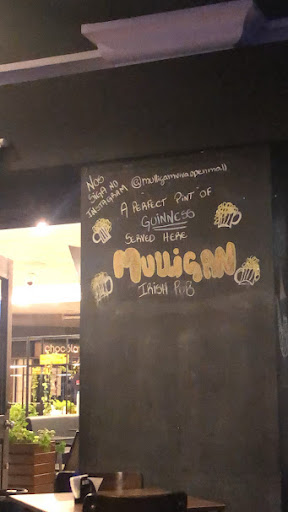 Nos
SIGA NO
INSTAGRAM
@mulliganvivaopenmall
A PERFECT PINT OF
GUINNESS
SERVED HERE
MULLiGAN
IRISH PUB